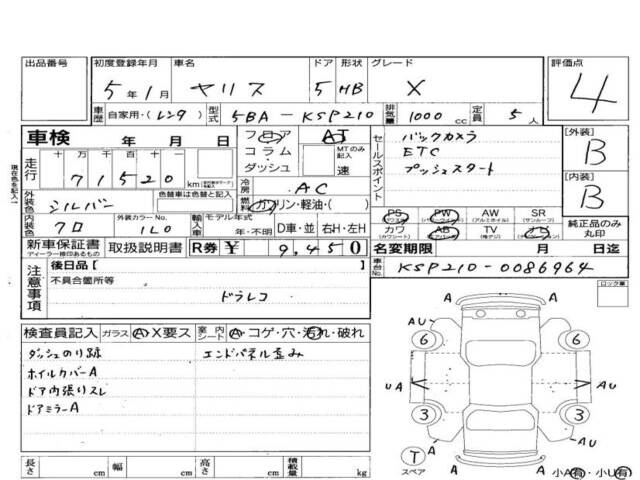 出品番号 初度登録年月 車名 ドア 形状 グレード 評価点
5年1月 ヤリス 5 HB X 4
車歴 自家用・(レンタ) 型式 5BA-KSP210 排気量 1000 cc 定員 5人
車検 年 月 日 フロア AT セールスポイント バックカメラ [外装]
現在色を記入 走行 十万千百十 コラム・ MTのみ記入 ETC B
71520 km ダッシュ 速 プッシュスタート [内装]
冷房 AC B
外装色 シルバー 色替車は色替と記入 燃料 ガソリン・軽油・( ) PS PW AW SR
内装色 クロ 外装カラーNo. 1L0 輸入車 モデル年式 年・不明 D車・並 右H・左H カワ AB TV ナビ 純正品のみ丸印
新車保証書 ディーラー捺印あるもの 取扱説明書 R券 ¥ 9,450 名変期限 月 日迄
注意事項 後日品[ ] 車台No. KSP210-0086964
不具合箇所等 ロック車
ドラレコ
検査員記入 ガラス A・X要ス 室内シート A・コゲ・穴・汚れ・破れ
ダッシュのり跡 エンドパネル歪み
ホイルカバーA
ドア内張りスレ
ドアミラーA
A A
AU 6 6 A
UA AU
3 3
A AU
T スペア A A 小A有・小U有
長さ cm 幅 cm 高さ cm 積載量 kg